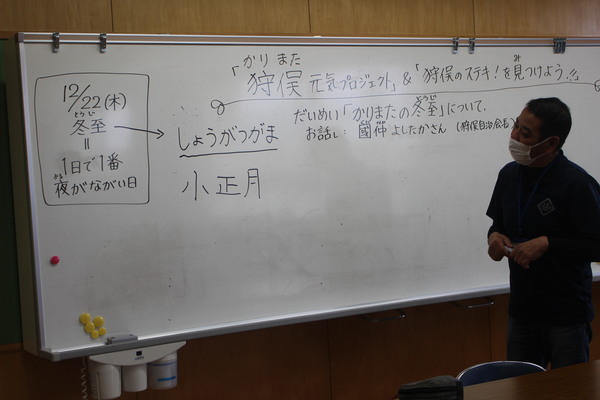 かり また
「狩俣 元気プロジェクト」&「狩俣のステキ!を見つけよう」
だいめい「かりまたの冬至」について
お話し: 國仲 よしたかさん (狩俣自治会長)
12/22(木)
とうじ
冬至
=
1日で1番
夜がながい日
しょうがつがま
小正月